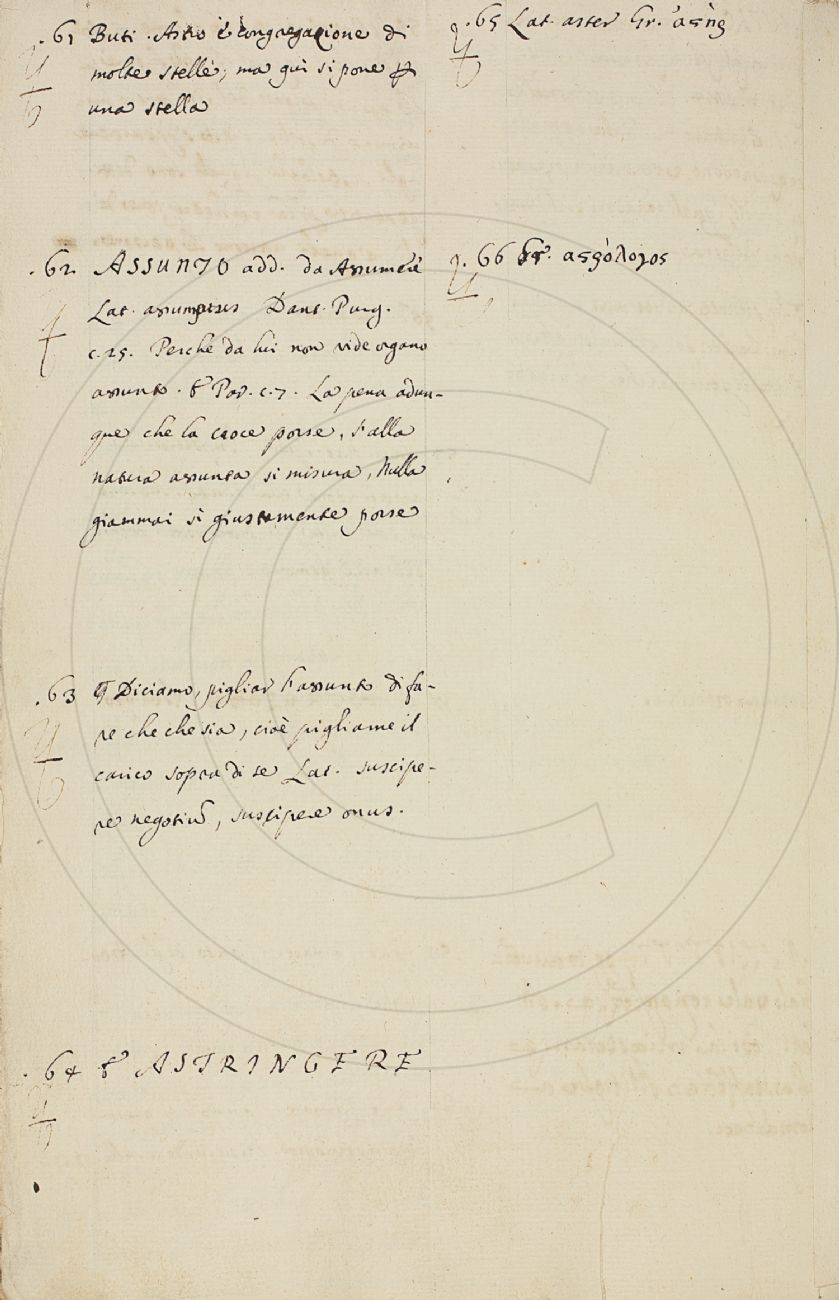 .61 Buti. Astro è congregazione di
molte stelle, ma qui si pone ꝑ
una stella
.62. ASSUNTO add. da Assumere
Lat. assumptus Dant. Purg.
c.25. Perchè da lui non vide organo
assunto. & Par. c.7. La pena adun-
que che la croce porse, s'alla
natura assunta si misura, Nulla
giammai sì giustamente porse
.63 Diciamo, pigliar l'assunto di fa-
re che chè sia, cioè pigliarne il
carico sopra di se Lat. suscipe-
re negotiū, suscipere onus.
.64 & ASTRINGERE
.65 Lat. aster Gr. ἀϛὴρ
.66 Gr. αϛρόλογος